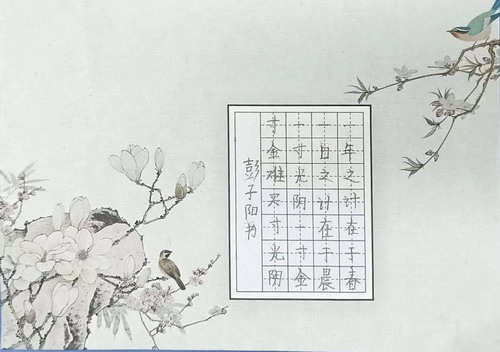 一年之计在于春
一日之计在于晨
一寸光阴一寸金
寸金难买寸光阴
彭子阳书